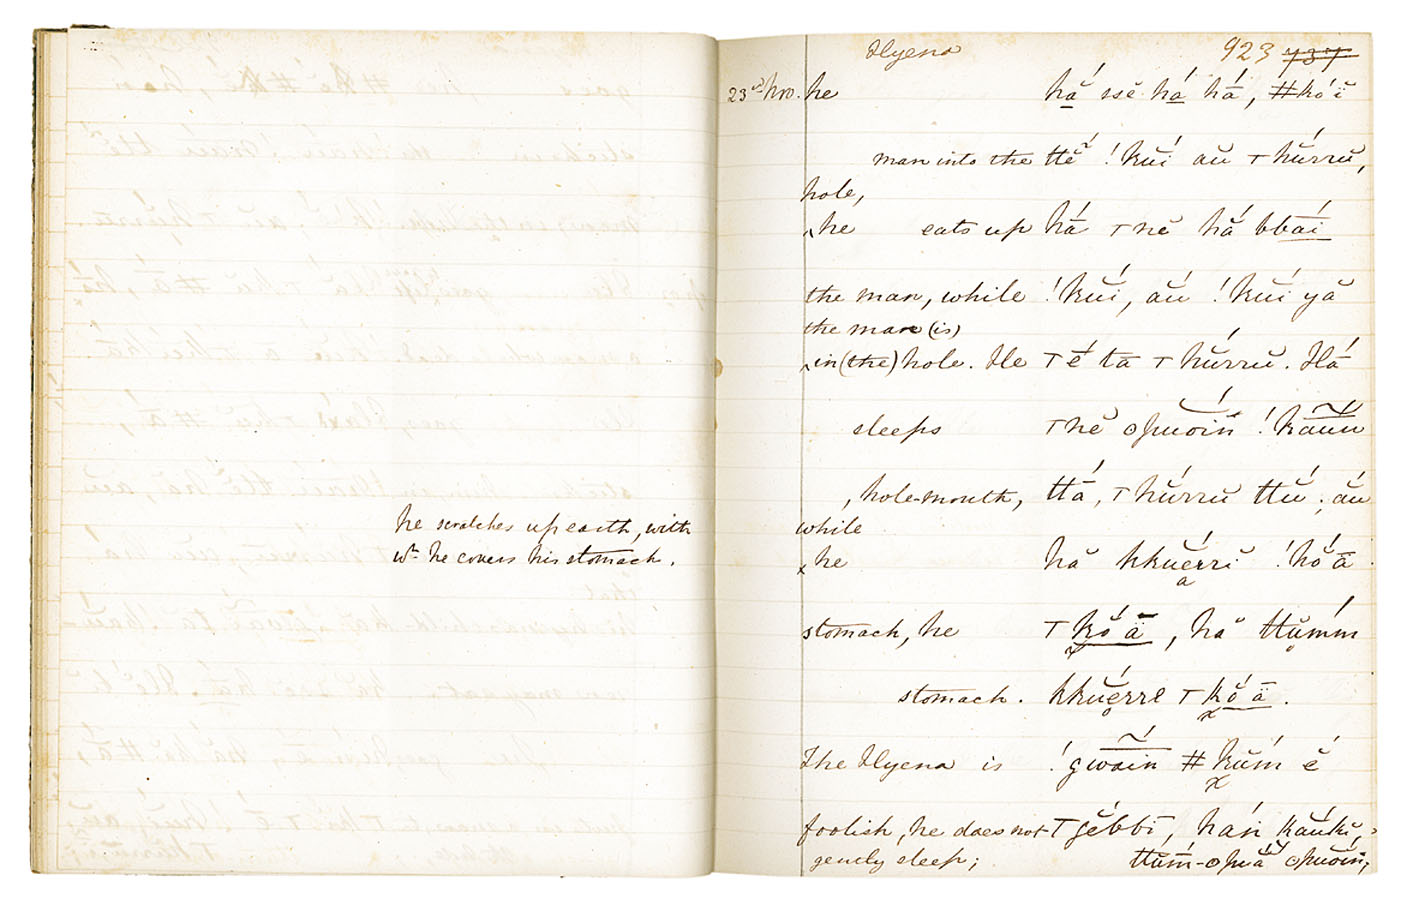 he scratches up earth, with
wh he covers his stomach.
Hyena 923 737
23rd Nov. he hắ ssĕ há hā́, #kóĭ
man into the ttĕ́ !kŭí aŭ ⊤hŭ́rrŭ,
hole,
he eats up hā́ ⊤nĕ hắ bbāí
the man, while !kŭí, aŭ́ !kŭí yă
the man (is)
in (the) hole. He ⊤ĕ́ ta ⊤hŭ́rrŭ. Há
sleeps ⊤nĕ ʘpuoin
, hole-mouth, ttā́, ⊤hŭ́rrŭ ttŭ́; aŭ́
while
he hă kkuĕ́rri !hŏ́ā
stomach, he ⊤kŏ́ā, hă ttŭmḿ
stomach. kkuĕ́rre ⊤kŏ́ā.
The Hyena is !gwain #kŭ́m ĕ́
foolish, he does not ⊤gĕ́bbī, háń kaŭ́kĭ,
gently sleep; ttŭḿ-ʘpuă ʘpuoin;